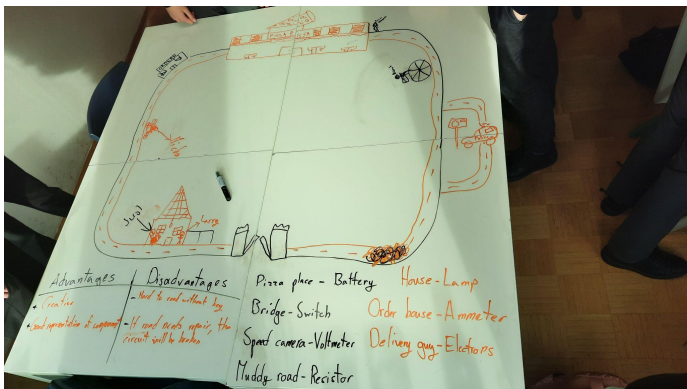 PIZZA
Advantages
Disadvantages
+ Creative
- Hard to read without key
+ Good representation of components
- If road needs repair, the
circuit will be broken
Pizza place - Battery
Bridge - Switch
Speed camera - Voltmeter
Muddy road - Resistor
House - Lamp
Order house - Ammeter
Delivery guy - Electrops